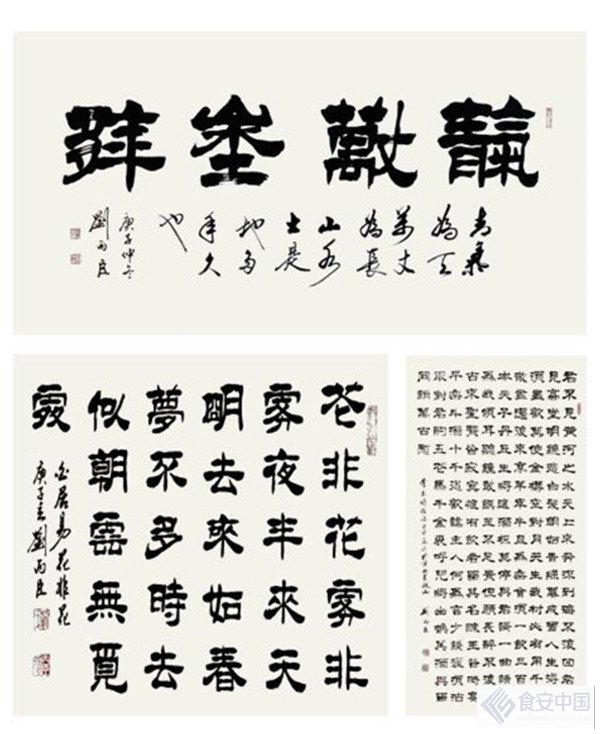 靝 埊
青氣
為天
萬丈
為長
山水
土是
地多
年久
也
庚子仲冬
劉丙臣
花非花霧非
霧夜半來天
明去來如春
夢不多時去
似朝雲無覓
處
白居易花非花
庚子春劉丙臣
君不見黃河之水天上來奔流到海不復回君不
見高堂明鏡悲白髮朝如青絲暮成雪人生得意
須盡歡莫使金樽空對月天生我材必有用千
金散盡還復來烹羊宰牛且為樂會須一飲三百
杯岑夫子丹丘生將進酒杯莫停與君歌一曲請君
為我傾耳聽鐘鼓饌玉不足貴但願長醉不復醒
古來聖賢皆寂寞惟有飲者留其名陳王昔時宴
平樂斗酒十千恣歡謔主人何為言少錢徑須沽
取對君酌五花馬千金裘呼兒將出換美酒與爾
同銷萬古愁
食安中国